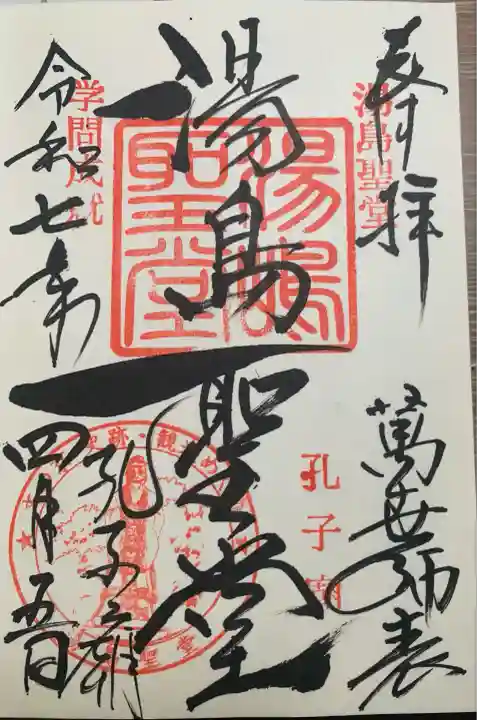 奉拝
湯島聖堂
萬世師表
孔子廟
湯島聖堂
湯嶋聖堂
孔子廟
学問成就
令和七年四月五日
跡・観
聖堂